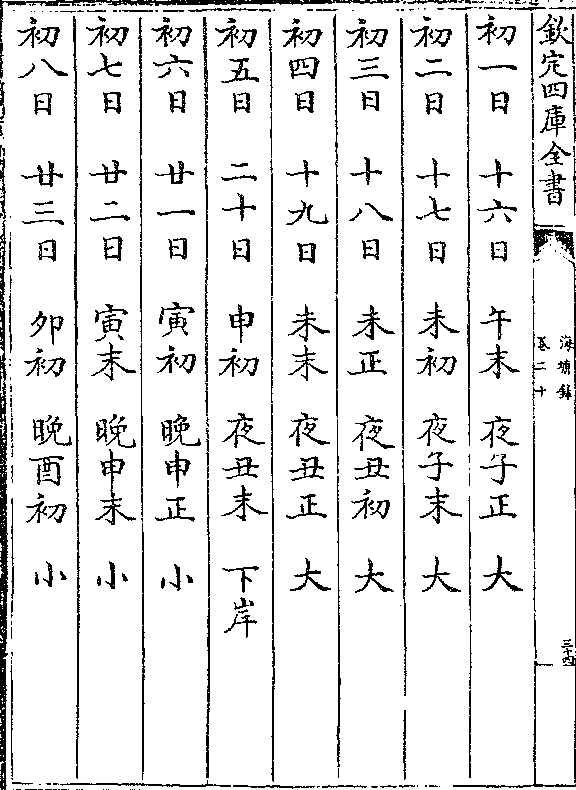 欽定四庫全書
海塘錄
卷二十
三十四
初一日 十六日 午末 夜子正 大
初二日 十七日 未初 夜子末 大
初三日 十八日 未正 夜丑初 大
初四日 十九日 未末 夜丑正 大
初五日 二十日 申初 夜丑末 下岸
初六日 廿一日 寅初 晚申正 小
初七日 廿二日 寅末 晚申末 小
初八日 廿三日 卯初 晚酉初 小